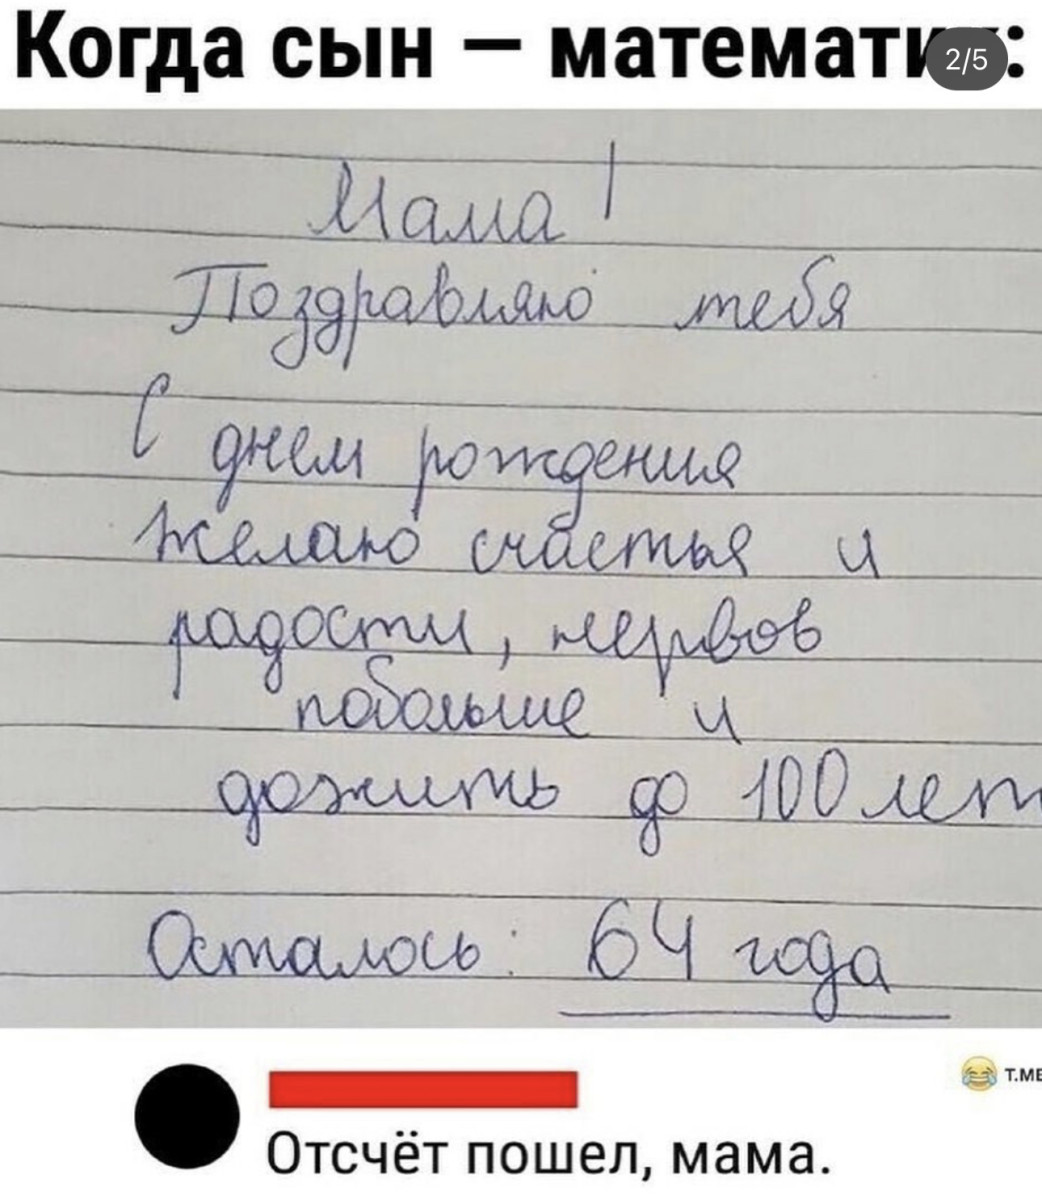 Когда сын — математик:
2/5
Мама!
Поздравляю тебя
С днем рождения
желаю счастья и
радости, нервов
побольше и
дожить до 100 лет
Осталось: 64 года
Т.МЕ
Отсчёт пошел, мама.